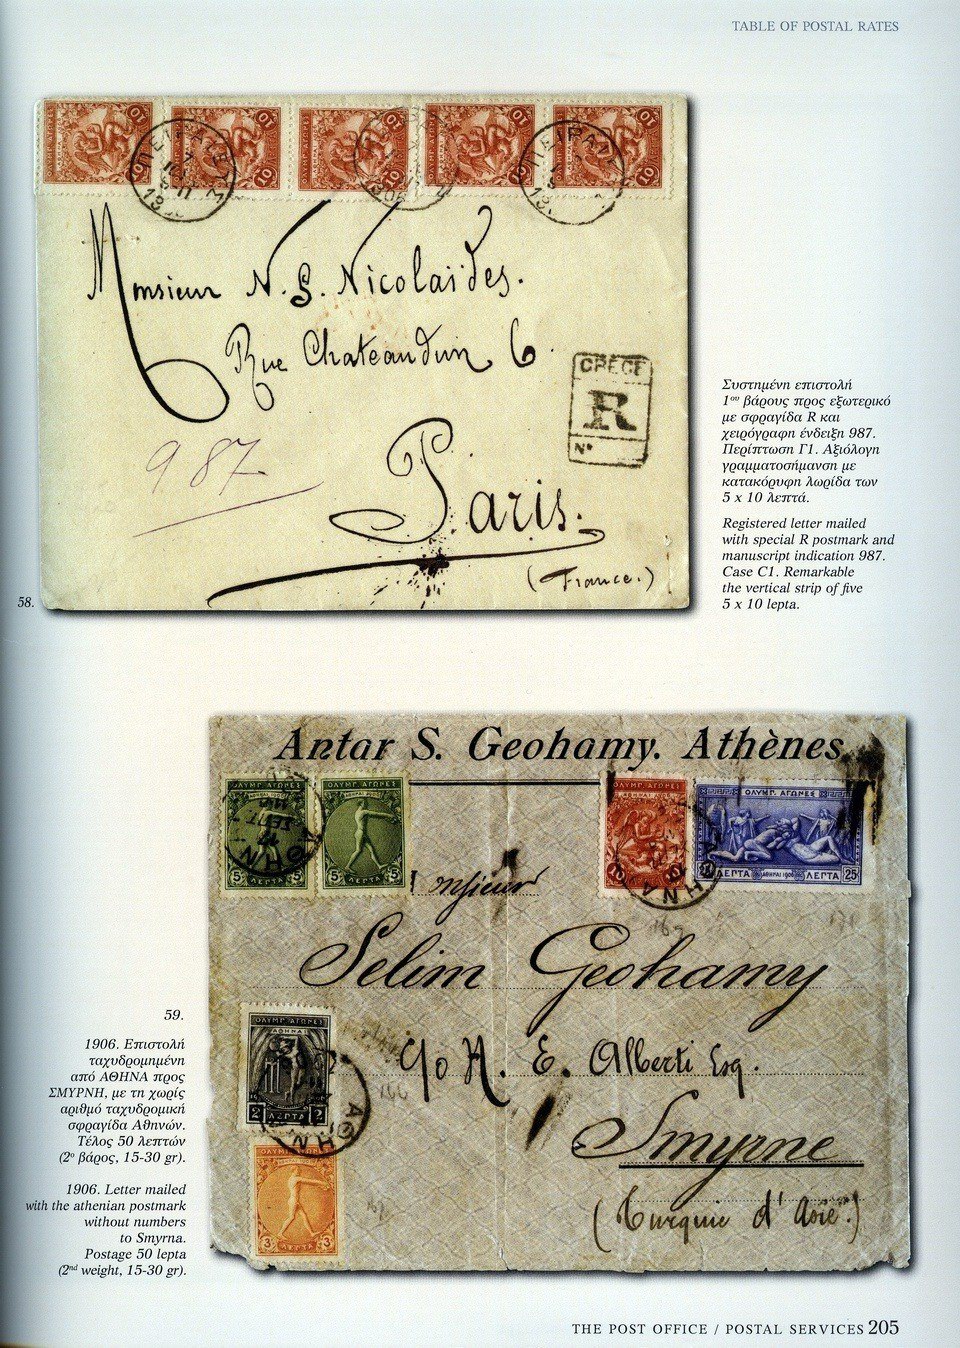 TABLE OF POSTAL RATES
ΠΕΙΡΑΙΕΥΣ
Monsieur N. S. Nicolaïdes.
Rue Chateaudun 6.
GRECE
R
Nº
987
Paris.
(France.)
58.
Συστημένη επιστολή
1ου βάρους προς εξωτερικό
με σφραγίδα R και
χειρόγραφη ένδειξη 987.
Περίπτωση Γ1. Αξιόλογη
γραμματοσήμανση με
κατακόρυφη λωρίδα των
5 x 10 λεπτά.
Registered letter mailed
with special R postmark and
manuscript indication 987.
Case C1. Remarkable
the vertical strip of five
5 x 10 lepta.
Antar S. Geohamy. Athènes
ΟΛΥΜΠ. ΑΓΩΝΕΣ
5 ΛΕΠΤΑ 5
ΟΛΥΜΠ. ΑΓΩΝΕΣ
5 ΛΕΠΤΑ 5
ΟΛΥΜΠ. ΑΓΩΝΕΣ
10
ΟΛΥΜΠ. ΑΓΩΝΕΣ
ΛΕΠΤΑ ΑΘΗΝΑΙ 1906 ΛΕΠΤΑ 25
Monsieur
Selim Geohamy
c/o H. E. Alberti Esq.
Smyrne
(Turquie d'Asie)
ΟΛΥΜΠ. ΑΓΩΝΕΣ
ΑΘΗΝΑΙ
2 ΛΕΠΤΑ 2
ΑΘΗΝΑΙ
3 ΛΕΠΤΑ 3
59.
1906. Επιστολή
ταχυδρομημένη
από ΑΘΗΝΑ προς
ΣΜΥΡΝΗ, με τη χωρίς
αριθμό ταχυδρομική
σφραγίδα Αθηνών.
Τέλος 50 λεπτών
(2ο βάρος, 15-30 gr).
1906. Letter mailed
with the athenian postmark
without numbers
to Smyrna.
Postage 50 lepta
(2nd weight, 15-30 gr).
THE POST OFFICE / POSTAL SERVICES 205